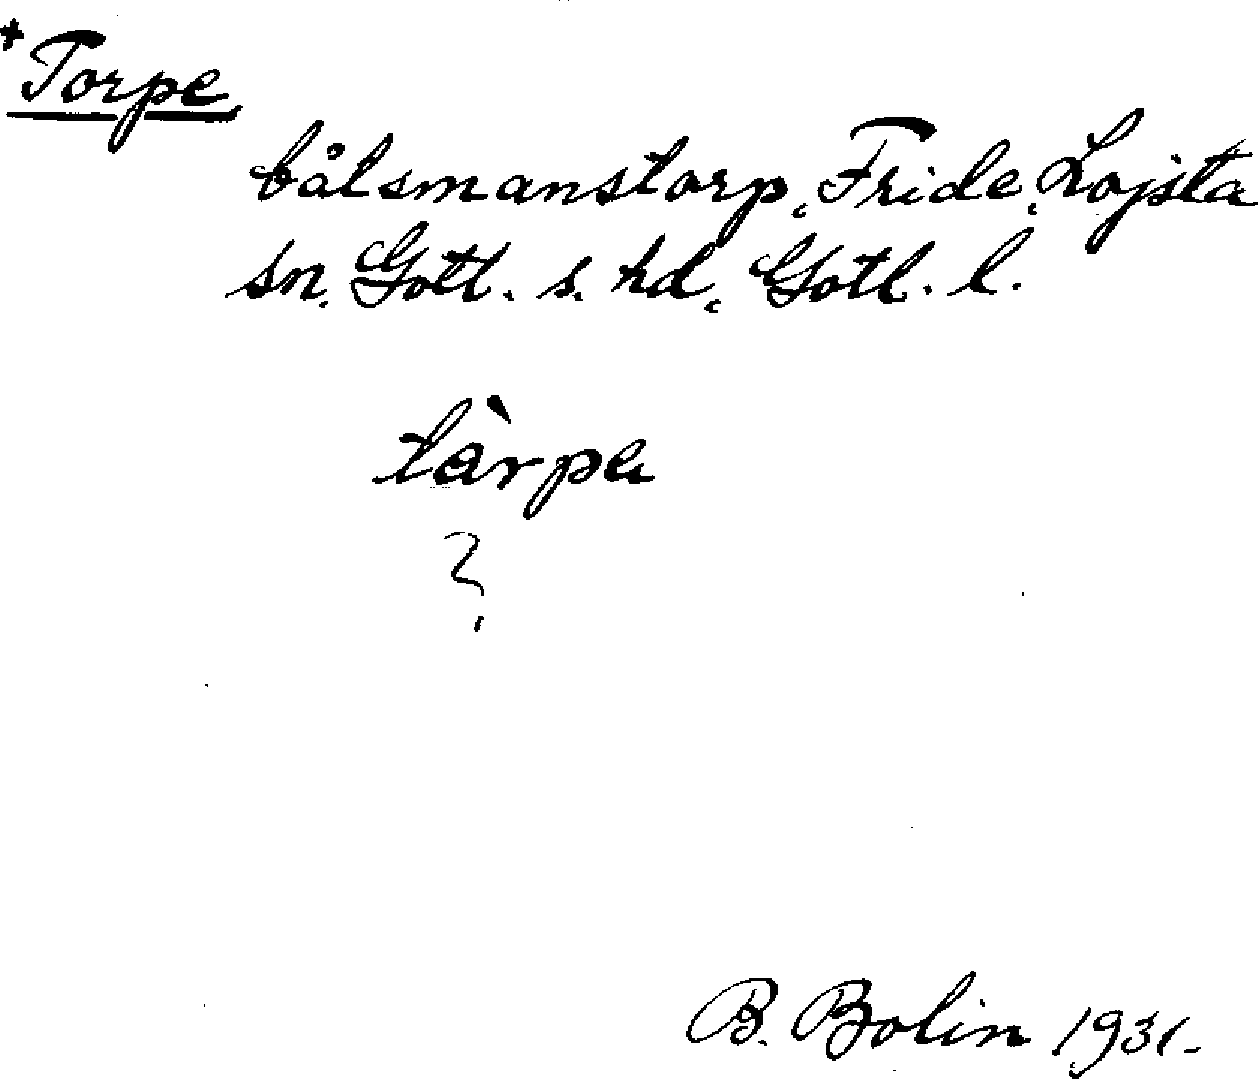 +Torpe
båtsmanstorp, Fride, Lojsta
sn, Gotl. s. hd, Gotl. l.
tàrpe
?
B. Bolin 1931.